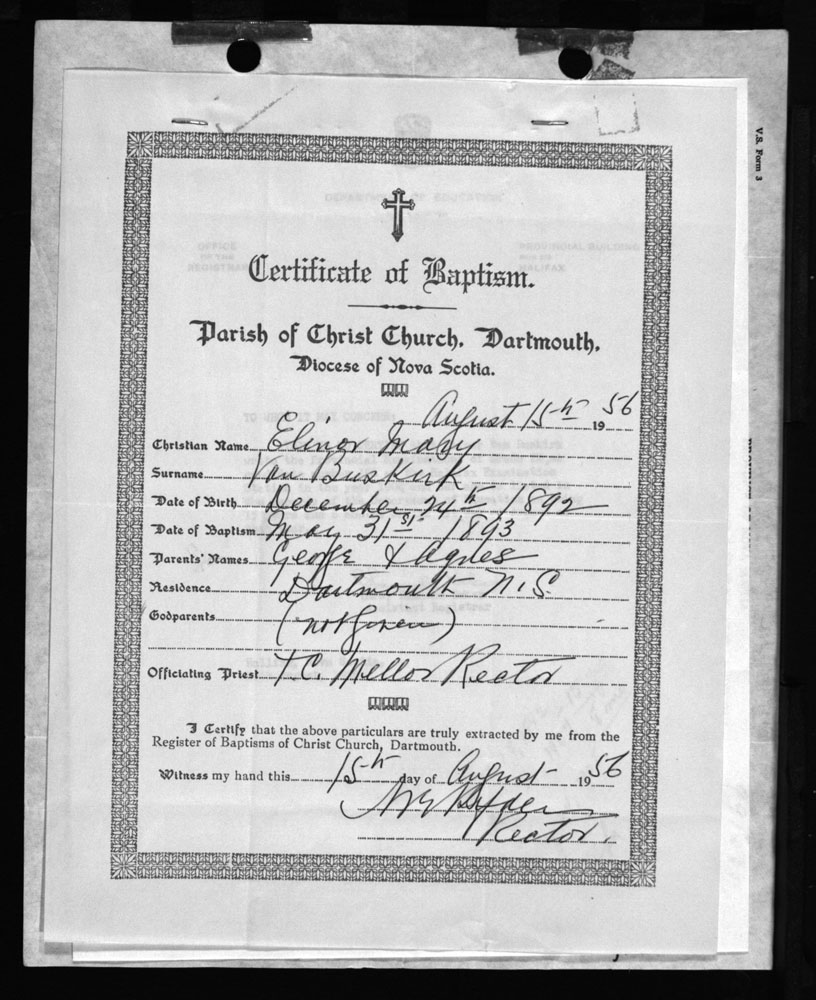 V.S. Form 3
DEPARTMENT OF EDUCATION
OFFICE
OF THE
REGISTRAR
PROVINCIAL BUILDING
HALIFAX
Certificate of Baptism.
Parish of Christ Church, Dartmouth,
Diocese of Nova Scotia.
August 15th 1956
Christian Name Elinor Mary
Surname Van Buskirk
Date of Birth December 24th 1892
Date of Baptism May 31st 1893
Parents' Names George & Agnes
Residence Dartmouth N.S.
Godparents (not given)
Officiating Priest T.C. Mellor Rector
I Certify that the above particulars are truly extracted by me from the
Register of Baptisms of Christ Church, Dartmouth.
Witness my hand this 15th day of August 1956
Rector.